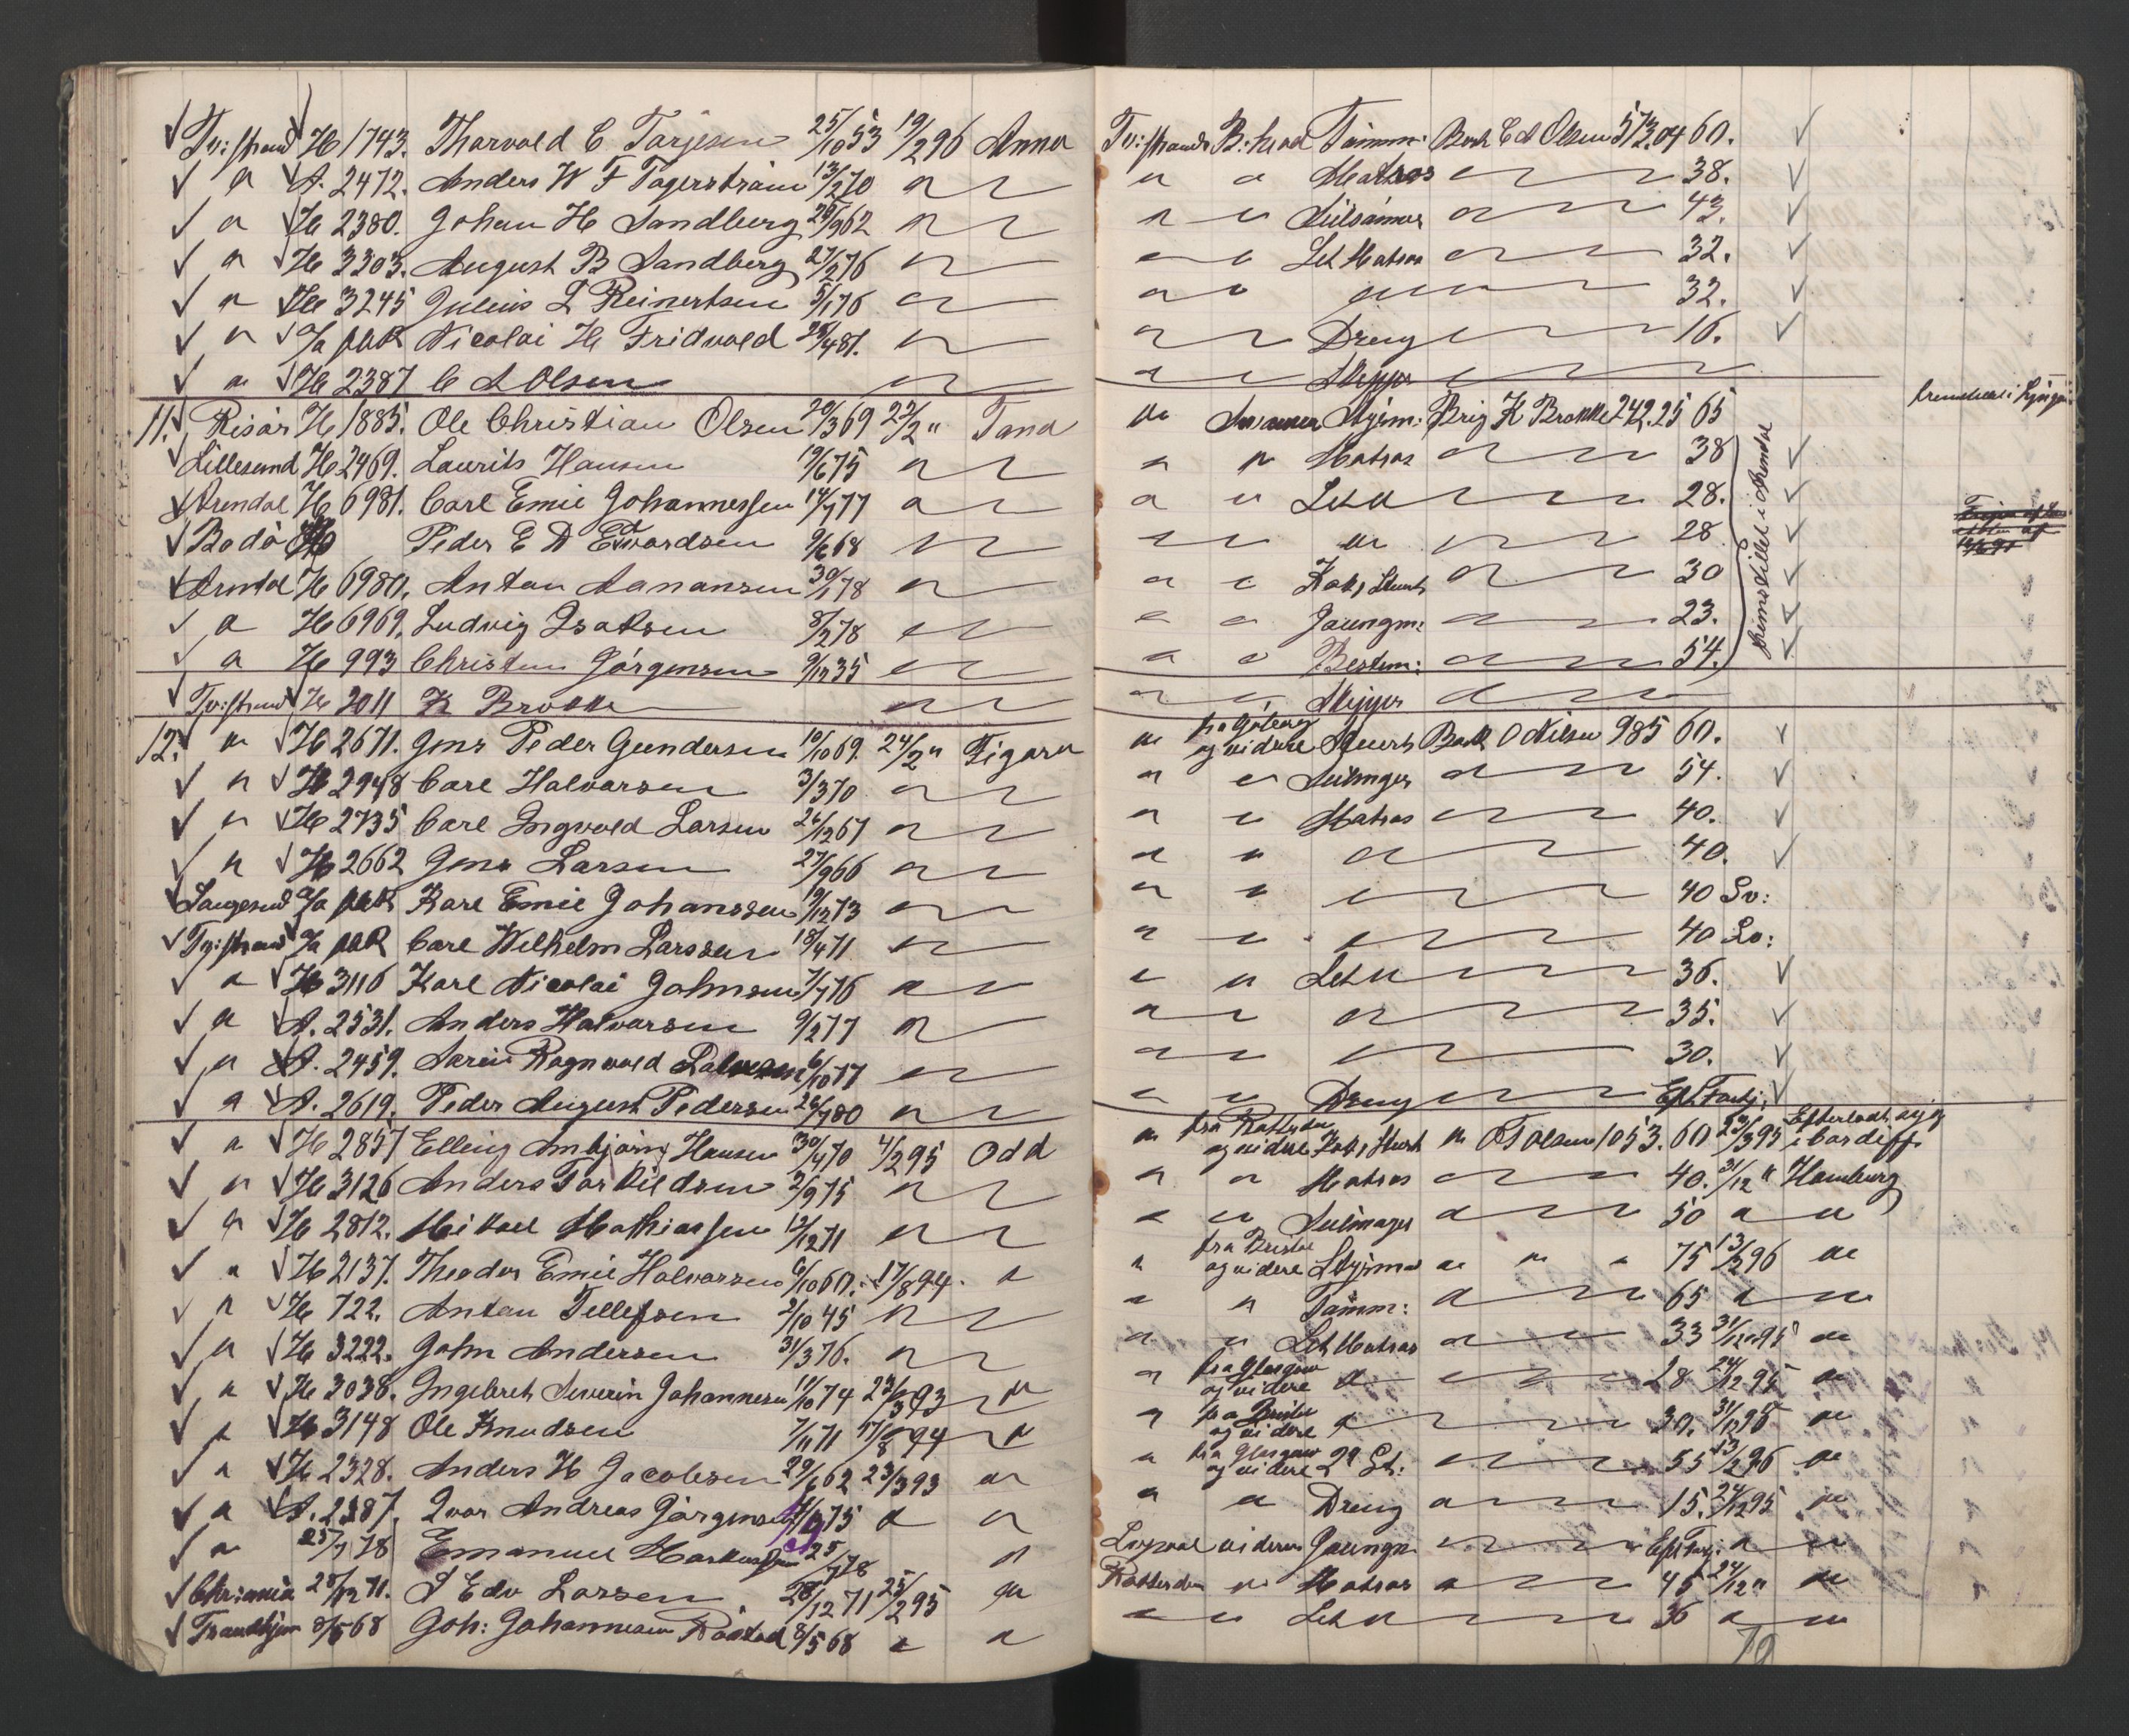 Tv:strand H 1743. Tharvald C Tarjesen 25/10 53 19/2 96 Anna
" A. 2472. Anders W F Tagerstrøm 13/2 70 "
" H 2380. Johan H Sandberg 29/9 62 "
" H 3303. August B Sandberg 27/2 76 "
" H 3245 Julius L Reinertsen 5/1 76 "
" Ja pak Nicolai H Fridvold 25/4 81. "
" H 2387 C A Olsen "
11. Risør H 1885. Ole Christian Olsen 20/3 69 22/2 " Tana
Lillesand H 2469. Laurits Hansen 19/6 75 "
Arendal H 6981. Carl Emil Johannessen 14/7 77 "
Bodø Peder E D Edvardsen 9/6 68 "
Arendal H 6980. Anton Aanansen 30/1 78 "
" H 6969. Ludvig Isaksen 8/2 78 "
" H 993 Christen Jørgensen 9/12 35 "
Tv:strand H 2011 K Brokke "
12. " H 2671. Jens Peder Gundersen 10/10 69. 24/2 " Figaro
" H 2948 Carl Halvorsen 3/3 70 "
" H 2735 Carl Ingvald Larsen 26/12 67 "
" H 2662 Jens Larsen 27/9 66 "
Langesund Ja pak Karl Emil Johanssen 19/12 73 "
Tv:strand Ja pak Carl Wilhelm Larssen 18/4 71 "
" H 3116 Karl Nicolai Johnsen 7/7 76 "
" A. 2531. Anders Halvorsen 9/2 77 "
" A. 2459. Søren Ragnvald 6/10 77 "
" A. 2619. Peder August Pedersen 26/7 80 "
" H 2857 Elling Anbjørn Hansen 30/4 70 4/2 95 Odd
" H 3126 Anders Torkildsen 2/9 75 "
" H 2812. Mikael Mathiassen 12/12 71 "
" H 2137. Theodor Emil Halvorsen 6/10 60. 17/8 94. "
" H 722. Anton Tellefsen 2/10 45 "
" H 3222. John Andersen 31/3 76. "
" H 3038. Ingebret Severin Johannesen 11/10 74 23/3 93 "
" H 3148 Ole Knudsen 7/11 71 17/8 94 "
" H 2328. Anders H Jacobsen 29/6 62 23/3 93 "
" A. 2387. Ivar Andreas Jørgensen 75 " "
" 25/7 78 Emanuel Markussen 25/7 78 "
Chriania 28/12 71. S Edv Larsen 28/12 71 25/2 95 "
Trondhjem 8/5 68 Joh: Johannesen 8/5 68 " "
Tv:strand B.head Tømm: Bark C A Olsen 60.
" " Matros " 38.
" " " 43.
" " Let Matros " 32.
" " " 32.
" " Dreng " 16.
" " Skipper "
" Styrm: Brig K Brokke 242.25 65
" " Matros " 38
" " Let M " 28.
" " " " 28
" " Kok, Stuert " 30
" " Jaungm: " 23.
" " Bestm: " 54.
" " Skipper "
hjemstillet i Arendal
" fra Gøteborg og videre Stuert Bark O Nilsen 985 60.
" " " 54.
" " Matros " 40.
" " " 40.
" " " 40 Sv:
" " " 40 Sv:
" " Let M " 36.
" " " 35.
" " " 30.
" " Dreng "
" fra Rotterdam og videre Kok, Stuert " O T Olsen 1053. 60 23/3 95 i Cardiff.
" " Matros " 40. 31/12 " Hamburg
" " Seilmager " 50 " "
" fra Bristol og videre Styrm " " " 75 13/2 96 "
" " Tømm: " 65 " "
" " Let Matros " 33 31/12 95 "
" fra Glasgow og videre " " 28 24/12 95 "
" fra Bristol og videre " " 30. 31/12 95 "
" fra Glasgow og videre 2d St: " 55 13/2 96 "
" " Dreng " 15. 24/12 95 "
videre Jaungm " " "
Rotterdam " Matros " 45 24/12 " "
" " Let M " 36 " "
79